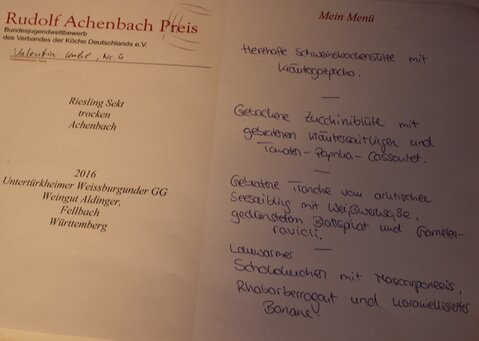 Rudolf Achenbach Preis
Bundesjugendwettbewerb
des Verbandes der Köche Deutschlands e.V.
Valentin Nr. 4
Riesling Sekt
trocken
Achenbach
2016
Untertürkheimer Weissburgunder GG
Weingut Aldinger,
Fellbach
Württemberg
Mein Menü
Herzhafte Schweinsbackensülze mit
Kräutergazpacho.
Gebackene Zucchiniblüte mit
gebratenen Kräutersaitlingen und
Tomaten-Paprika-Cassoulet.
Gebratene Tranche vom arktischen
Seesaibling mit Weißweinsoße,
gedünstetem Blattspinat und Garnelen-
ravioli.
Lauwarmer
Schokokuchen mit Mascarponeeis,
Rhabarberragout und karamellisierter
Banane.